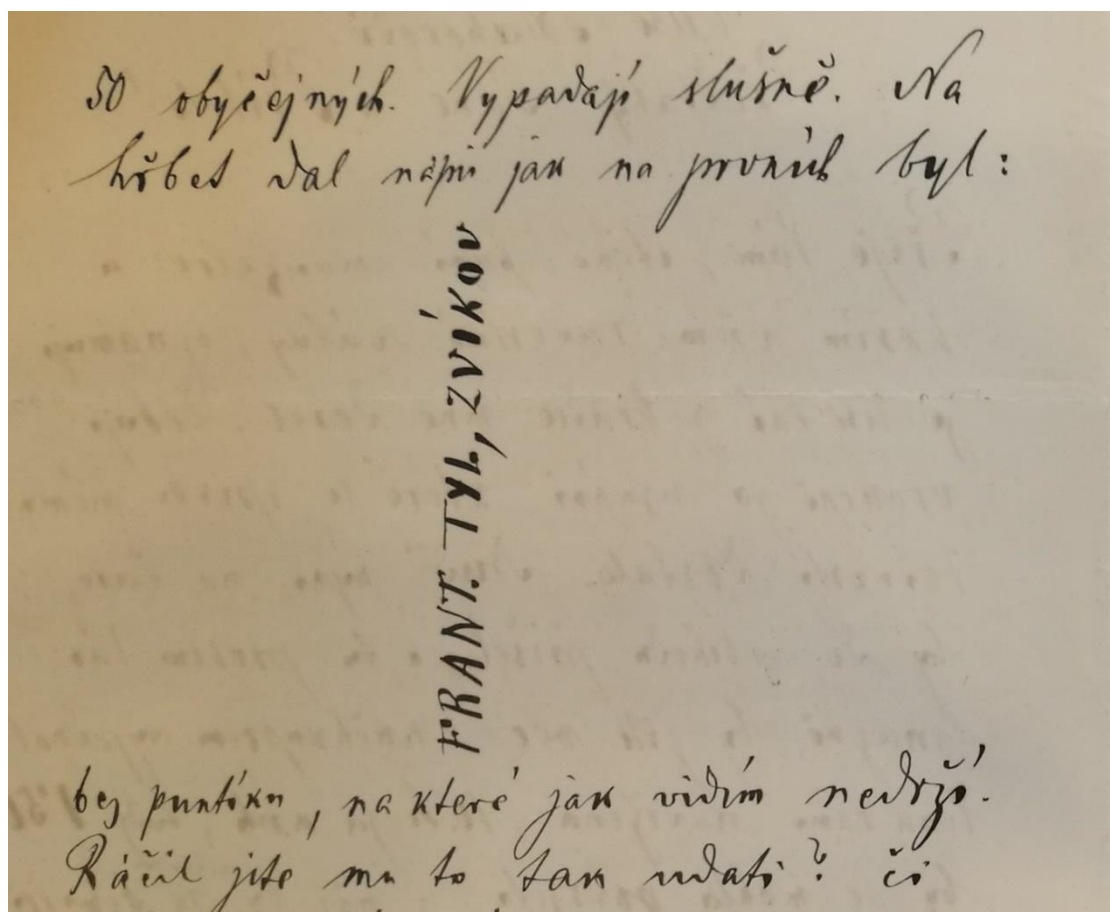 50 obyčejných. Vypadají slušně. Na
hřbet dal nápis jak na prvních byl:
FRANT. TYL, ZVÍKOV
bez puntíku, na které jak vidím nedrží.
Ráčil jste mu to tak udati? či